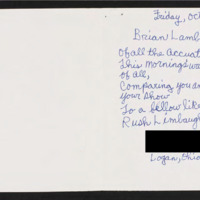 Friday, Oct
Brian Lamb
Of all the Accusati
This mornings wa
of all,
Comparing you an
Your Show
To a fellow like
Rush Limbaugh
Logan, Ohio